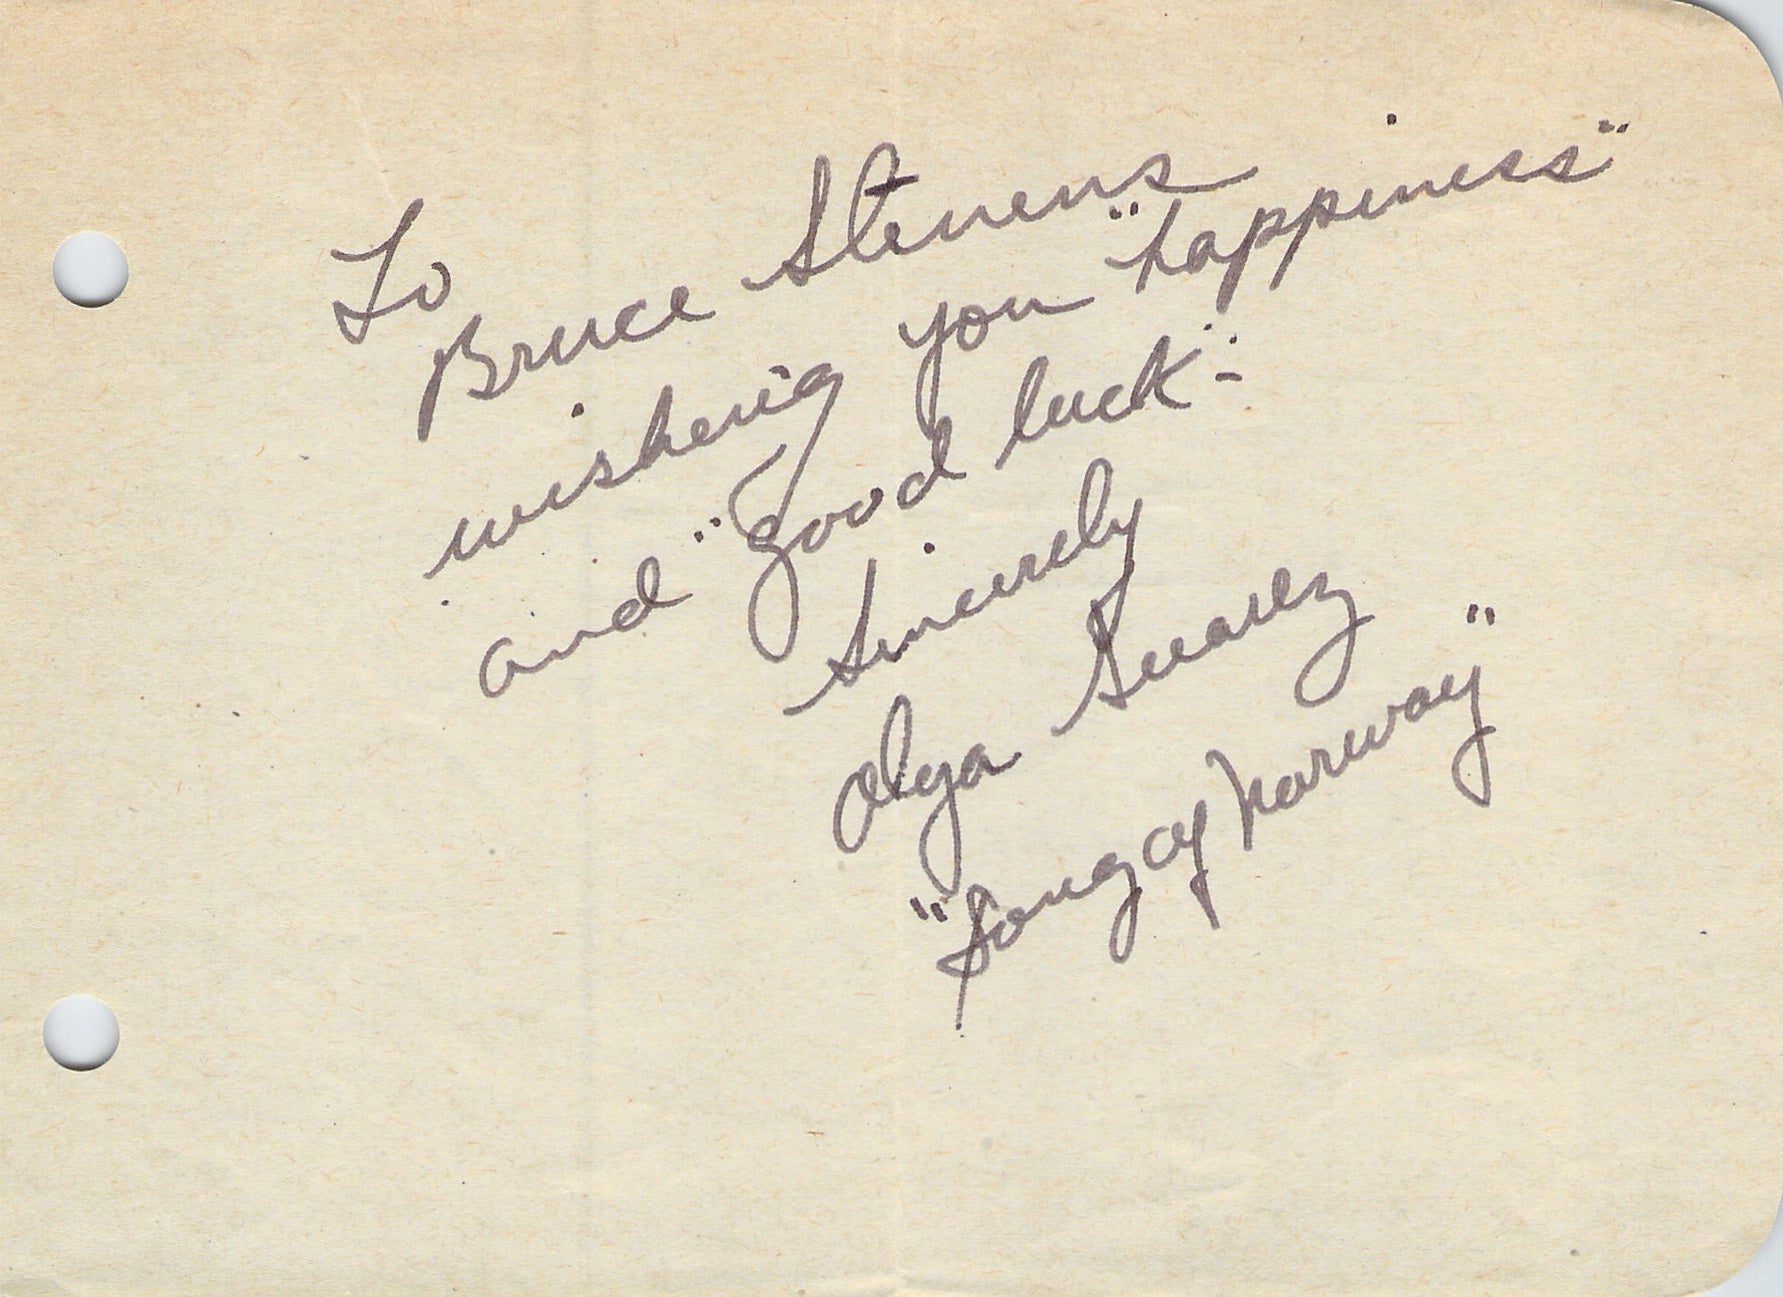 To
Bruce Stevens
wishing you "happiness"
and "good luck" -
Sincerely
Olga Suarez
"Song of Norway"